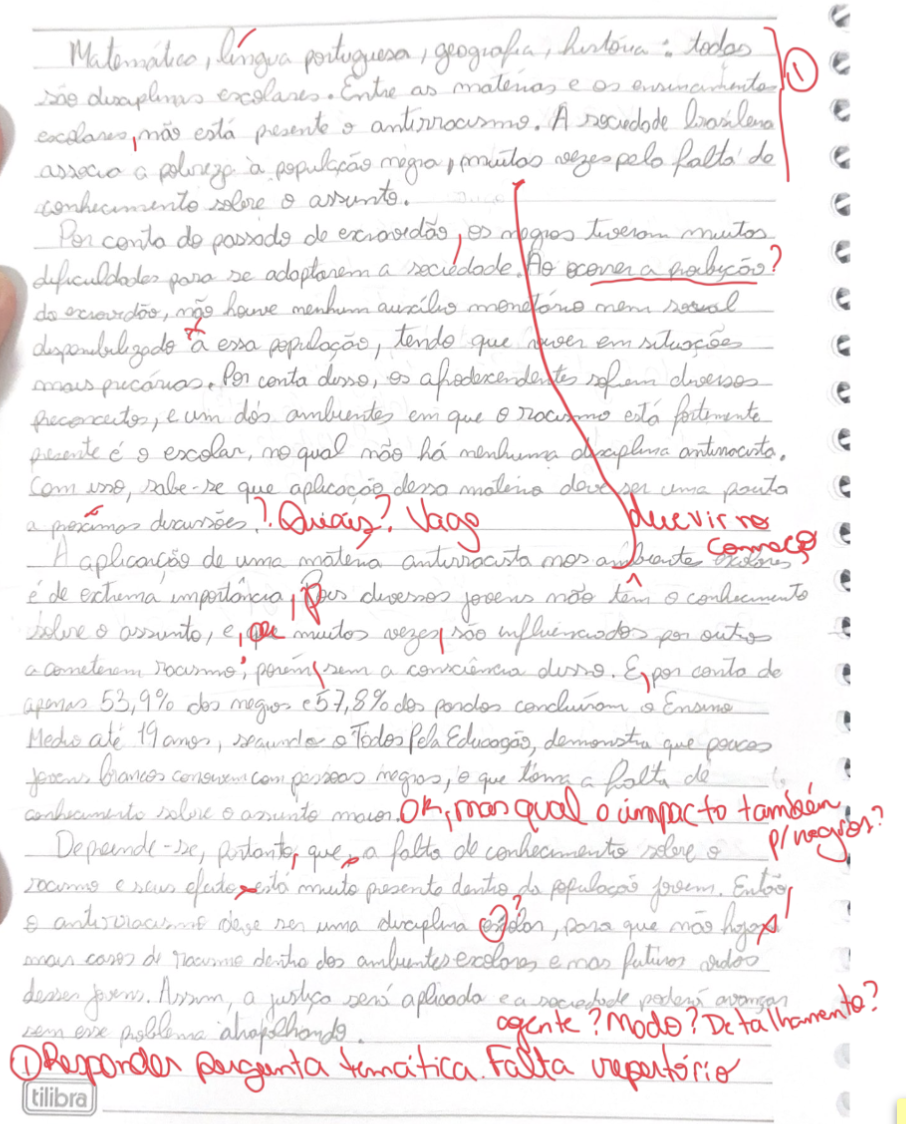 Matemática, língua portuguesa, geografia, história: todas ①
são disciplinas escolares. Entre as matérias e os ensinamentos
escolares, não está presente o antirracismo. A sociedade brasileira
associa a pobreza à população negra, muitas vezes pela falta de
conhecimento sobre o assunto.
Por conta do passado de escravidão, os negros tiveram muitas
dificuldades para se adaptarem a sociedade. Ao ocorrer a proibição?
da escravidão, não houve nenhum auxílio monetário nem social
disponibilizado à essa população, tendo que viver em situações
mais precárias. Por conta disso, os afrodescendentes sofrem diversos
preconceitos, e um dos ambientes em que o racismo está fortemente
presente é o escolar, no qual não há nenhuma disciplina antirracista.
Com isso, sabe-se que aplicação dessa matéria deve ser uma pauta
a próximas discussões. ? Quais? Vago
deve vir no
começo
A aplicação de uma matéria antirracista nos ambientes escolares,
é de extrema importância, pois diversos jovens não têm o conhecimento
sobre o assunto, e, que muitas vezes, são influenciados por outros
a cometerem racismo, porém, sem a consciência disso. E, por conta de
apenas 53,9% dos negros e 57,8% dos pardos concluíram o Ensino
Médio até 19 anos, segundo o Todos Pela Educação, demonstra que poucos
jovens brancos convivem com pessoas negras, o que torna a falta de
conhecimento sobre o assunto maior. OK, mas qual o impacto também
p/ negros?
Depreende-se, portanto, que, a falta de conhecimento sobre o
racismo e seus efeitos está muito presente dentro da população jovem. Então,
o antirracismo deve ser uma disciplina escolar, para que não haja ?
mais casos de racismo dentro dos ambientes escolares e nas futuras vidas
desses jovens. Assim, a justiça será aplicada e a sociedade poderá avançar
sem esse problema atrapalhando.
agente? Modo? Detalhamento?
① Responder pergunta temática. Falta repertório
tilibra